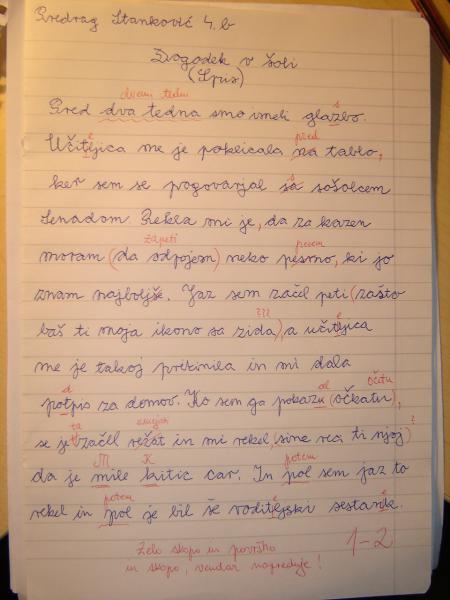 Predrag Stanković 4.b
Dogodek v šoli
(Spis)
dvem tedni
Pred dva tedna smo imeli glazbo.
s
Učitljica me je poklicala na tablo,
e
pred
ker sem se pogovarjal sa sošolcem
s
Senadom. Rekla mi je, da za kazen
moram (da odpojem) neko pesmo, ki jo
zapeti
pesem
znam najboljše. Jaz sem začel peti (zašto
baš ti moja ikono sa zida), a učitljica
???
e
me je takoj prekinila in mi dala
potpis za domov. Ko sem ga pokazu (očkatu),
d
al
očetu
se je začel režat in mi rekel (sine reci ti njoj)
ta
smejati
?
da je mile kitic car. In pol sem jaz to
M
K
potem
rekel in pol je bil še roditeljski sestank.
potem
e
Zelo skopo in površno
in skopo, vendar napreduje!
1-2